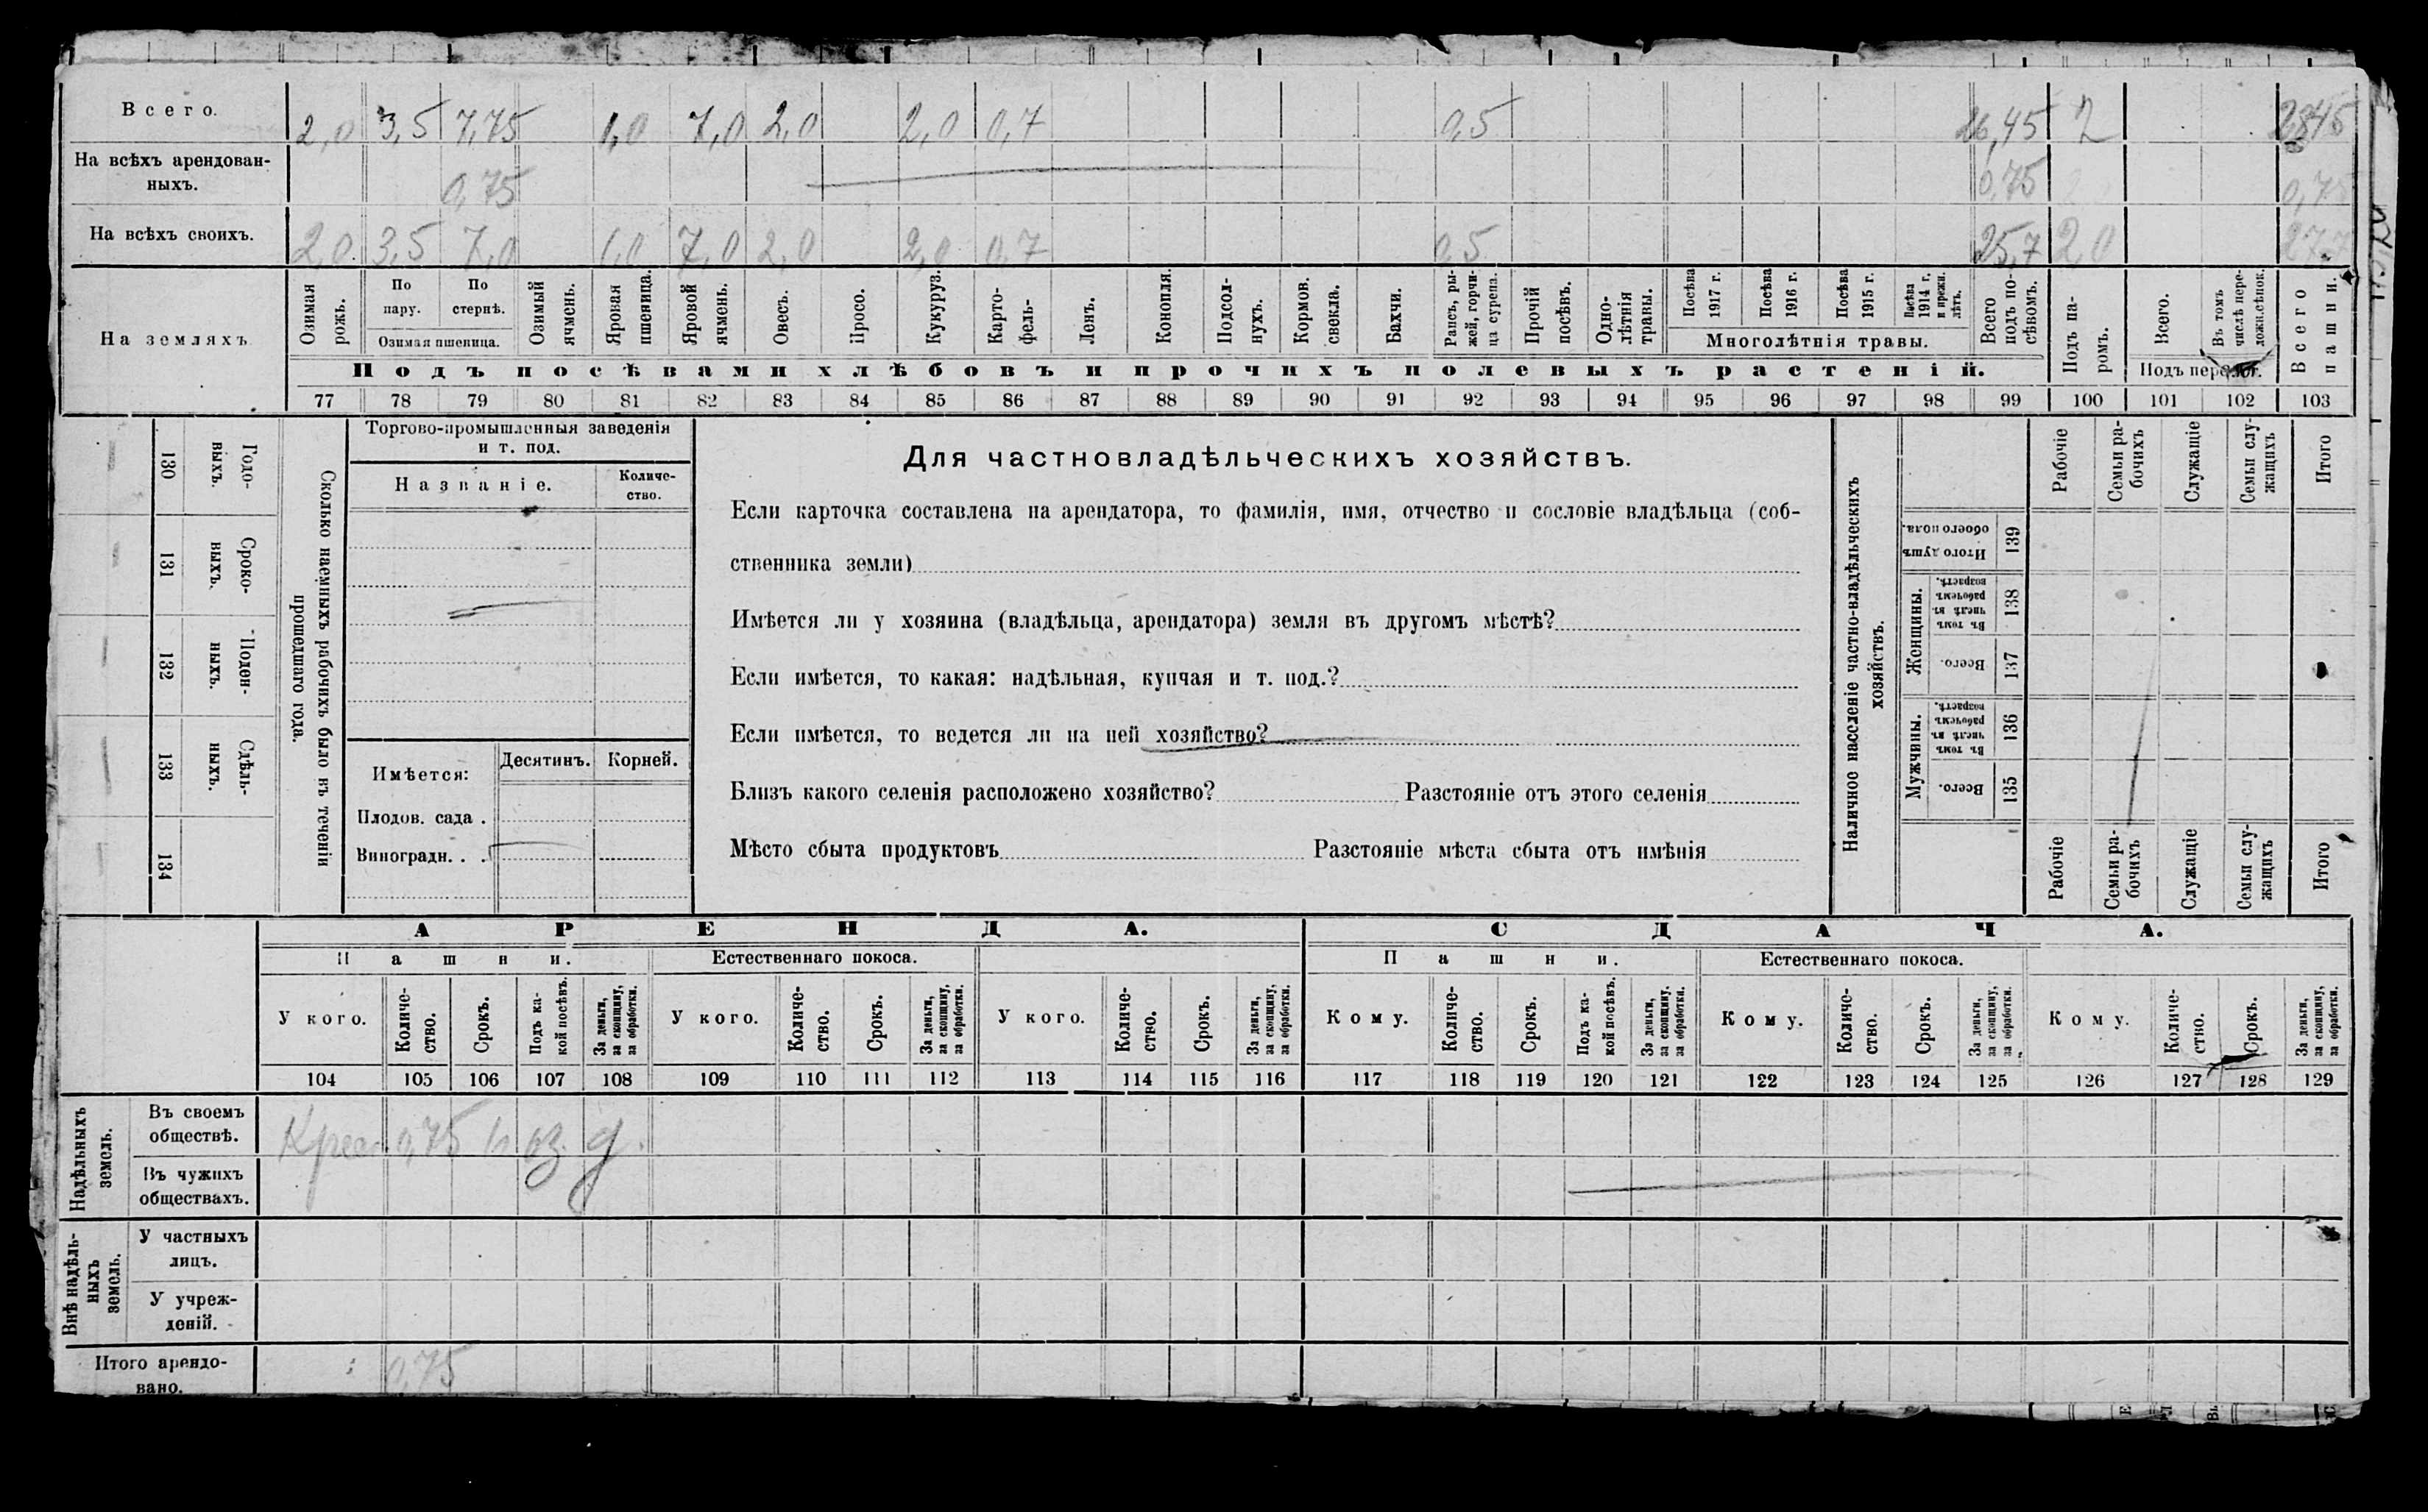 Всего. 2,0 3,5 7,75 1,0 7,0 2,0 2,0 0,7 0,5 26,45 2 28,45
На всѣхъ арендован-
ныхъ. 0,75 0,75 0,75
На всѣхъ своихъ. 2,0 3,5 7,0 1,0 7,0 2,0 2,0 0,7 0,5 25,7 2,0 27,7
На земляхъ
Озимая
рожь.
По
пару.
По
стернѣ.
Озимая пшеница.
Озимый
ячмень.
Яровая
пшеница.
Яровой
ячмень.
Овесъ.
Просо.
Кукуруз.
Карто-
фель-
Ленъ.
Конопля.
Подсол-
нухъ.
Кормов.
свекла.
Бахчи.
Рапсъ, ры-
жей, горчи-
ца сурепа.
Прочій
посѣвъ.
Одно-
лѣтнія
травы.
Посѣва
1917 г.
Посѣва
1916 г.
Посѣва
1915 г.
Посѣва
1914 г.
и прежн.
лѣтъ.
Многолѣтнія травы.
Всего
подъ по-
сѣвомъ.
Подъ па-
ромъ.
Всего.
Въ томъ
числѣ пере-
ложн. сѣнок.
Подъ перелог.
Всего
пашни.
Подъ посѣвами хлѣбовъ и прочихъ полевыхъ растеній.
77 78 79 80 81 82 83 84 85 86 87 88 89 90 91 92 93 94 95 96 97 98 99 100 101 102 103
130 Годо-
выхъ.
131 Сроко-
ныхъ.
132 Поден-
ныхъ.
133 Сдѣль-
ныхъ.
134
Сколько наемныхъ рабочихъ было въ теченіи
прошедшаго года.
Торгово-промышленныя заведенія
и т. под.
Названіе.
Количе-
ство.
Имѣется:
Десятинъ. Корней.
Плодов. сада .
Виноградн. . .
Для частновладѣльческихъ хозяйствъ.
Если карточка составлена на арендатора, то фамилія, имя, отчество и сословіе владѣльца (соб-
ственника земли)
Имѣется ли у хозяина (владѣльца, арендатора) земля въ другомъ мѣстѣ?
Если имѣется, то какая: надѣльная, купчая и т. под.?
Если имѣется, то ведется ли на ней хозяйство?
Близъ какого селенія расположено хозяйство? Разстояніе отъ этого селенія
Мѣсто сбыта продуктовъ Разстояніе мѣста сбыта отъ имѣнія
Наличное населеніе частно-владѣльческихъ
хозяйствъ.
Рабочіе
Семьи ра-
бочихъ
Служащіе
Семьи слу-
жащихъ
Итого
Итого душъ
обоего пола.
139
Женщины.
Въ томъ
числѣ въ
рабочемъ
возрастѣ.
138
Всего.
137
Мужчины.
Въ томъ
числѣ въ
рабочемъ
возрастѣ.
136
Всего.
135
Рабочіе
Семьи ра-
бочихъ
Служащіе
Семьи слу-
жащихъ
Итого
АРЕНДА. СДАЧА.
Пашни. Естественнаго покоса. Пашни. Естественнаго покоса.
У кого.
Количе-
ство.
Срокъ.
Подъ ка-
кой посѣвъ.
За деньги,
за скопщину,
за обработки.
У кого.
Количе-
ство.
Срокъ.
За деньги,
за скопщину,
за обработки.
У кого.
Количе-
ство.
Срокъ.
За деньги,
за скопщину,
за обработки.
Кому.
Количе-
ство.
Срокъ.
Подъ ка-
кой посѣвъ.
За деньги,
за скопщину.
за обработки.
Кому.
Количе-
ство.
Срокъ.
За деньги,
за скопщину,
за обработки.
Кому.
Количе-
ство.
Срокъ.
За деньги,
за скопщину,
за обработки.
104 105 106 107 108 109 110 111 112 113 114 115 116 117 118 119 120 121 122 123 124 125 126 127 128 129
Надѣльныхъ
земель.
Въ своемъ
обществѣ.
0,75 оз. д.
Въ чужихъ
обществахъ.
Внѣ надѣль-
ныхъ
земель.
У частныхъ
лицъ.
У учреж-
деній.
Итого арендо-
вано. 0,75